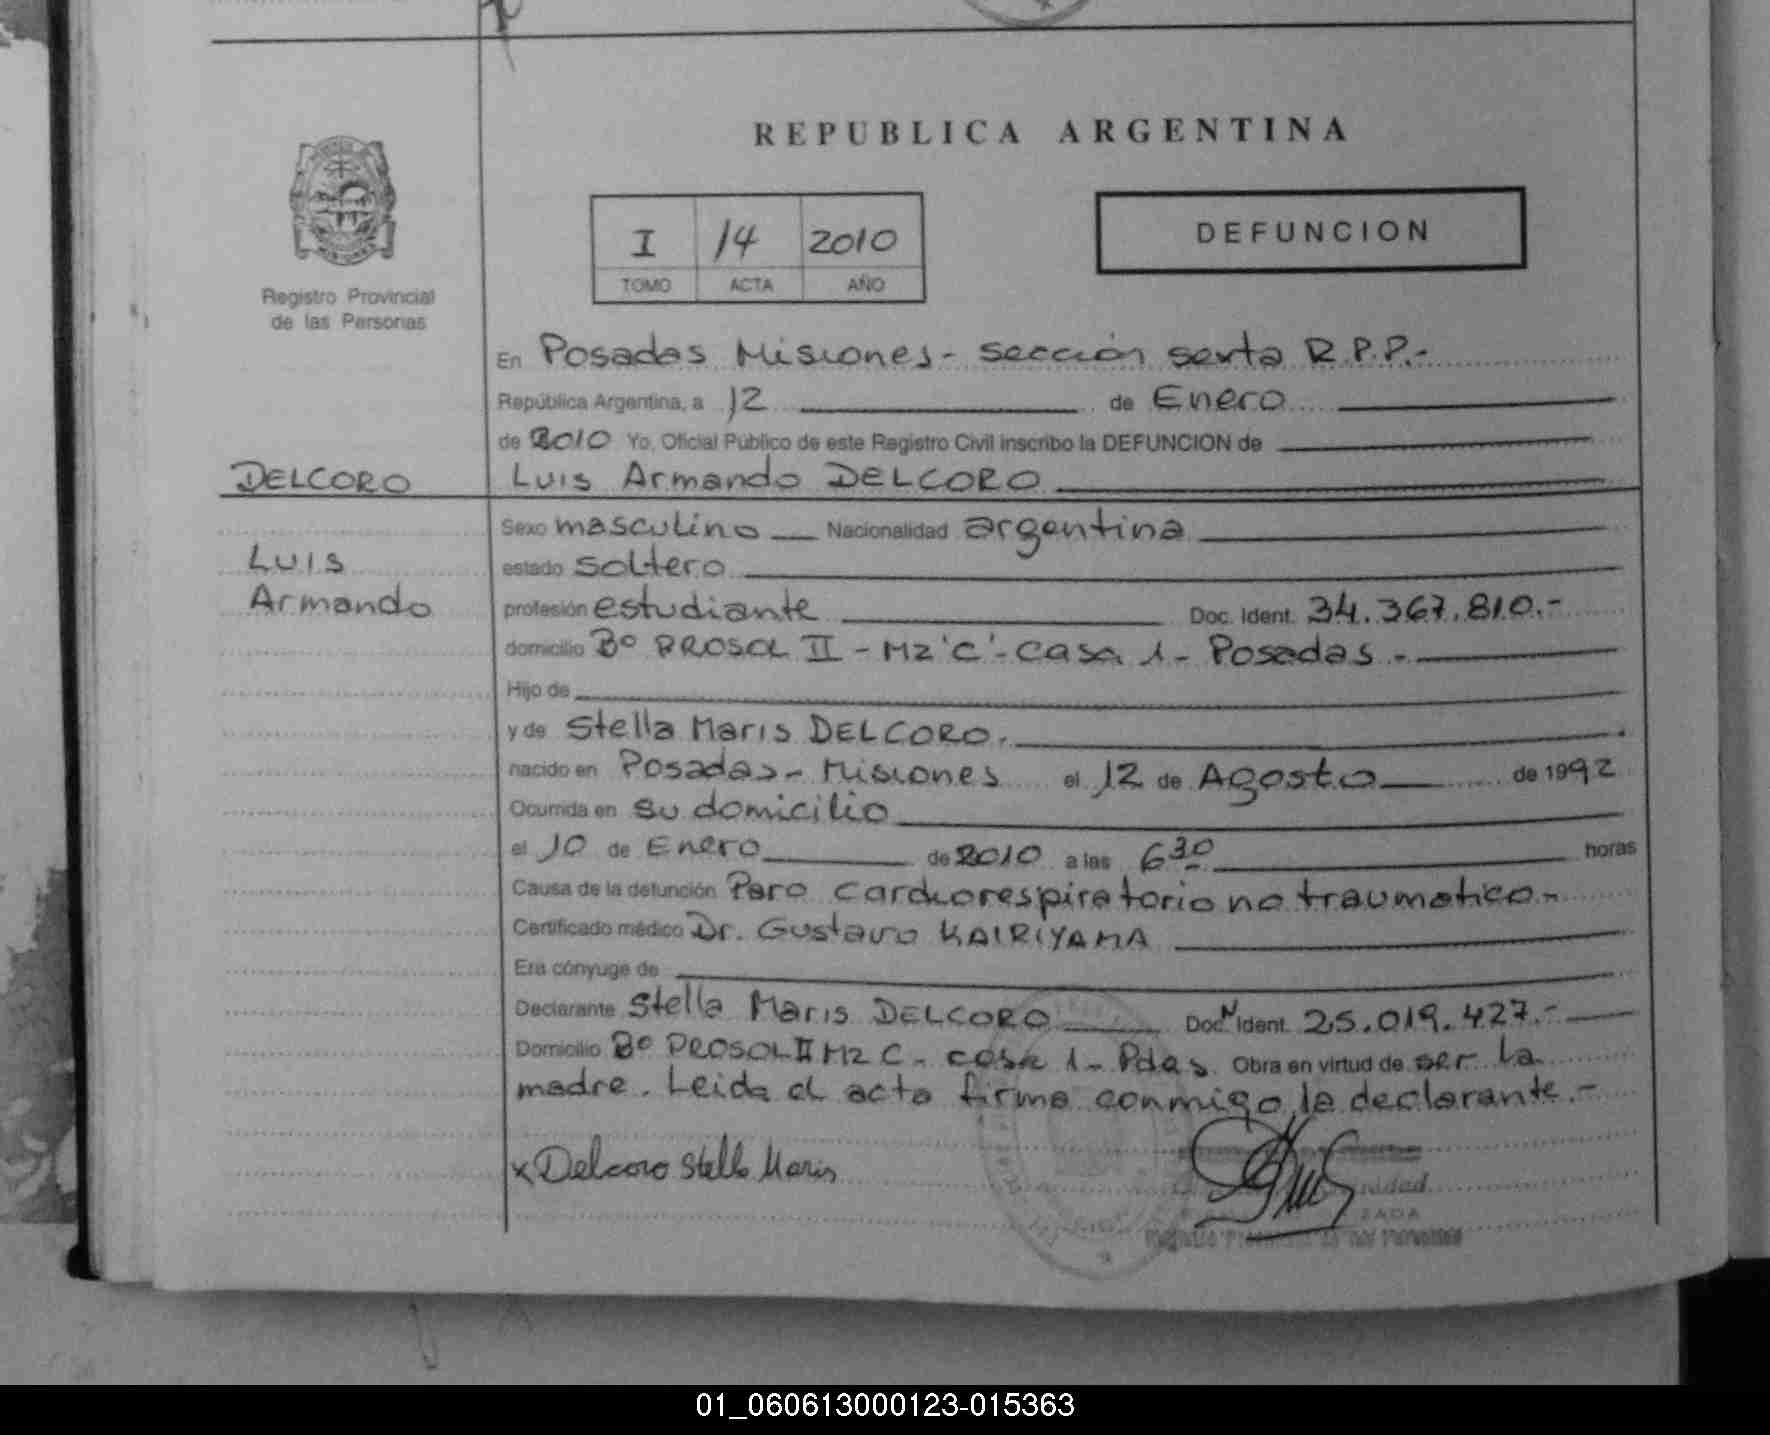 REPUBLICA ARGENTINA
I 14 2010
TOMO ACTA AÑO
DEFUNCION
Registro Provincial
de las Personas
En Posadas Misiones- sección sexta R.P.P.-
República Argentina, a 12 de Enero
de 2010 Yo, Oficial Público de este Registro Civil inscribo la DEFUNCION de
DELCORO Luis Armando DELCORO
Luis
Armando
Sexo masculino Nacionalidad argentina
estado soltero
profesión estudiante Doc. Ident. 34.367.810.-
domicilio Bº PROSOL II - Mz 'C' - casa 1 - Posadas -
Hijo de
y de Stella Maris DELCORO.
nacido en Posadas - Misiones el 12 de Agosto de 1992
Ocurrida en su domicilio
el 10 de Enero de 2010 a las 6 30 horas
Causa de la defunción Paro cardiorespiratorio no traumatico-
Certificado médico Dr. Gustavo KAIRIYAMA
Era cónyuge de
Declarante Stella Maris DELCORO Doc. N Ident. 25.019.427.-
Domicilio Bº PROSOL II Mz C - casa 1 - Pdas. Obra en virtud de ser la
madre. Leida el acta firma conmigo la declarante.-
x Delcoro Stella Maris
01_060613000123-015363